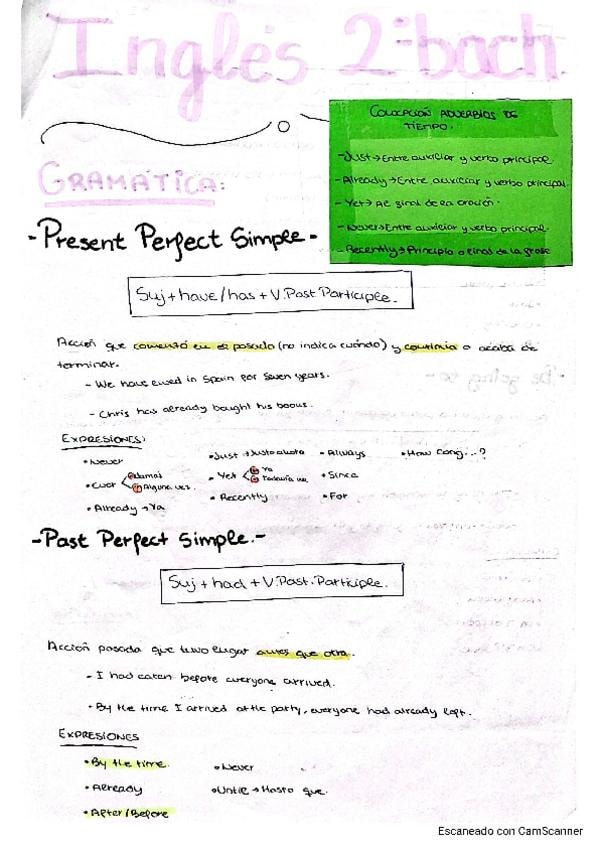 Inglés 2º bach.
COLOCACIÓN ADVERBIOS DE
TIEMPO.
-Just→Entre auxiliar y verbo principal
-Already→Entre auxiliar y verbo principal.
-Yet→Al final de la oración.
-Never→Entre auxiliar y verbo principal.
-Recently→Principio o final de la frase
GRAMÁTICA:
-Present Perfect Simple-
Suj+have/has+V.Past Participle.
Acción que comenzó en el pasado (no indica cuándo) y continúa o acaba de
terminar.
- We have lived in Spain for seven years.
- Chris has already bought his books.
EXPRESIONES:
•Never
•Just→Justo ahora
•Always
•How long...?
•Ever
Jamás
Alguna vez.
•Yet
Ya
Todavía no.
•Since
•Already→Ya
•Recently
•For
-Past Perfect Simple.-
Suj+had+V.Past.Participle.
Acción pasada que tuvo lugar antes que otra.
- I had eaten before everyone arrived.
-By the time I arrived at the party, everyone had already left.
EXPRESIONES
•By the time.
•Never
•Already
•Until→Hasta que.
•After/Before
Escaneado con CamScanner